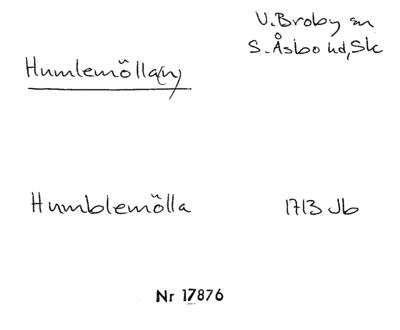 V. Broby sn
S. Åsbo hd, Sk
Humlemölla(n)
Humblemölla 1713 Jb
Nr 17876